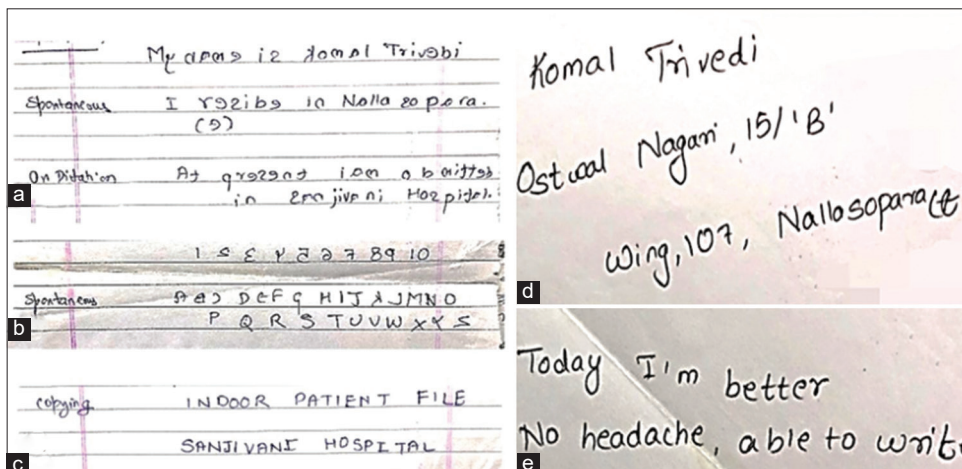 My name is Komal Trivedi
Spontaneous I reside in Nolla sopora.
(e)
On Dictation At present i am admitted
a in Sanjivani Hospital.
1 2 3 4 5 6 7 8 9 10
Spontaneous A B C D E F G H I J K L M N O
b P Q R S T U V W X Y Z
copying INDOOR PATIENT FILE
c SANJIVANI HOSPITAL
Komal Trivedi
Ostwal Nagari, 15/'B'
d Wing, 107, Nallosopara
Today I'm better
e No headache, able to writ